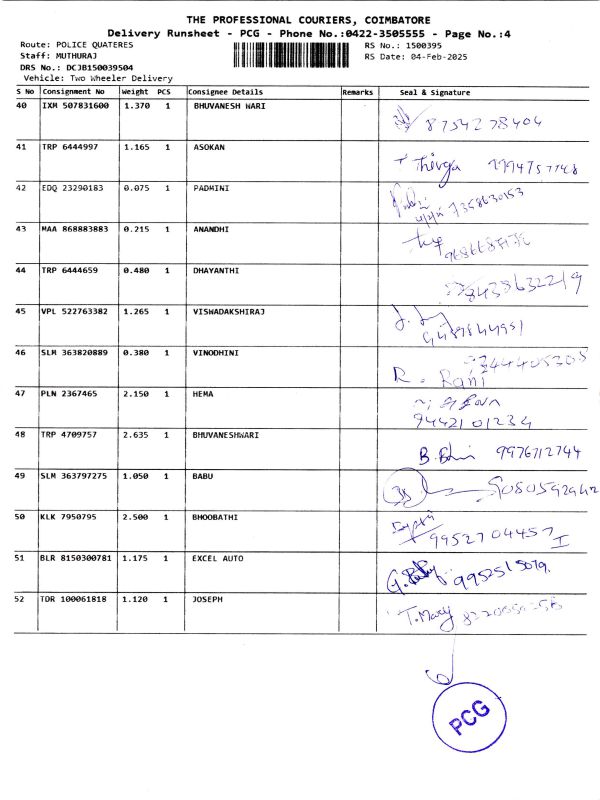 THE PROFESSIONAL COURIERS, COIMBATORE
Delivery Runsheet - PCG - Phone No.:0422-3505555 - Page No.:4
Route: POLICE QUATERES RS No.: 1500395
Staff: MUTHURAJ RS Date: 04-Feb-2025
DRS No.: DCJB150039504
Vehicle: Two Wheeler Delivery
S No Consignment No Weight PCS Consignee Details Remarks Seal & Signature
40 IXM 507831600 1.370 1 BHUVANESH WARI
8754278404
41 TRP 6444997 1.165 1 ASOKAN
T Thivya 9994757748
42 EDQ 23290183 0.075 1 PADMINI
7358630153
43 MAA 868883883 0.215 1 ANANDHI
44 TRP 6444659 0.480 1 DHAYANTHI
8438632219
45 VPL 522763382 1.265 1 VISWADAKSHIRAJ
46 SLM 363820889 0.380 1 VINODHINI
R. Rani
47 PLN 2367465 2.150 1 HEMA
9442101234
48 TRP 4709757 2.635 1 BHUVANESHWARI
9976712744
49 SLM 363797275 1.050 1 BABU
9080592942
50 KLK 7950795 2.500 1 BHOOBATHI
9952704457
51 BLR 8150300781 1.175 1 EXCEL AUTO
9952515079
52 TDR 100061818 1.120 1 JOSEPH
T. Mary
PCG